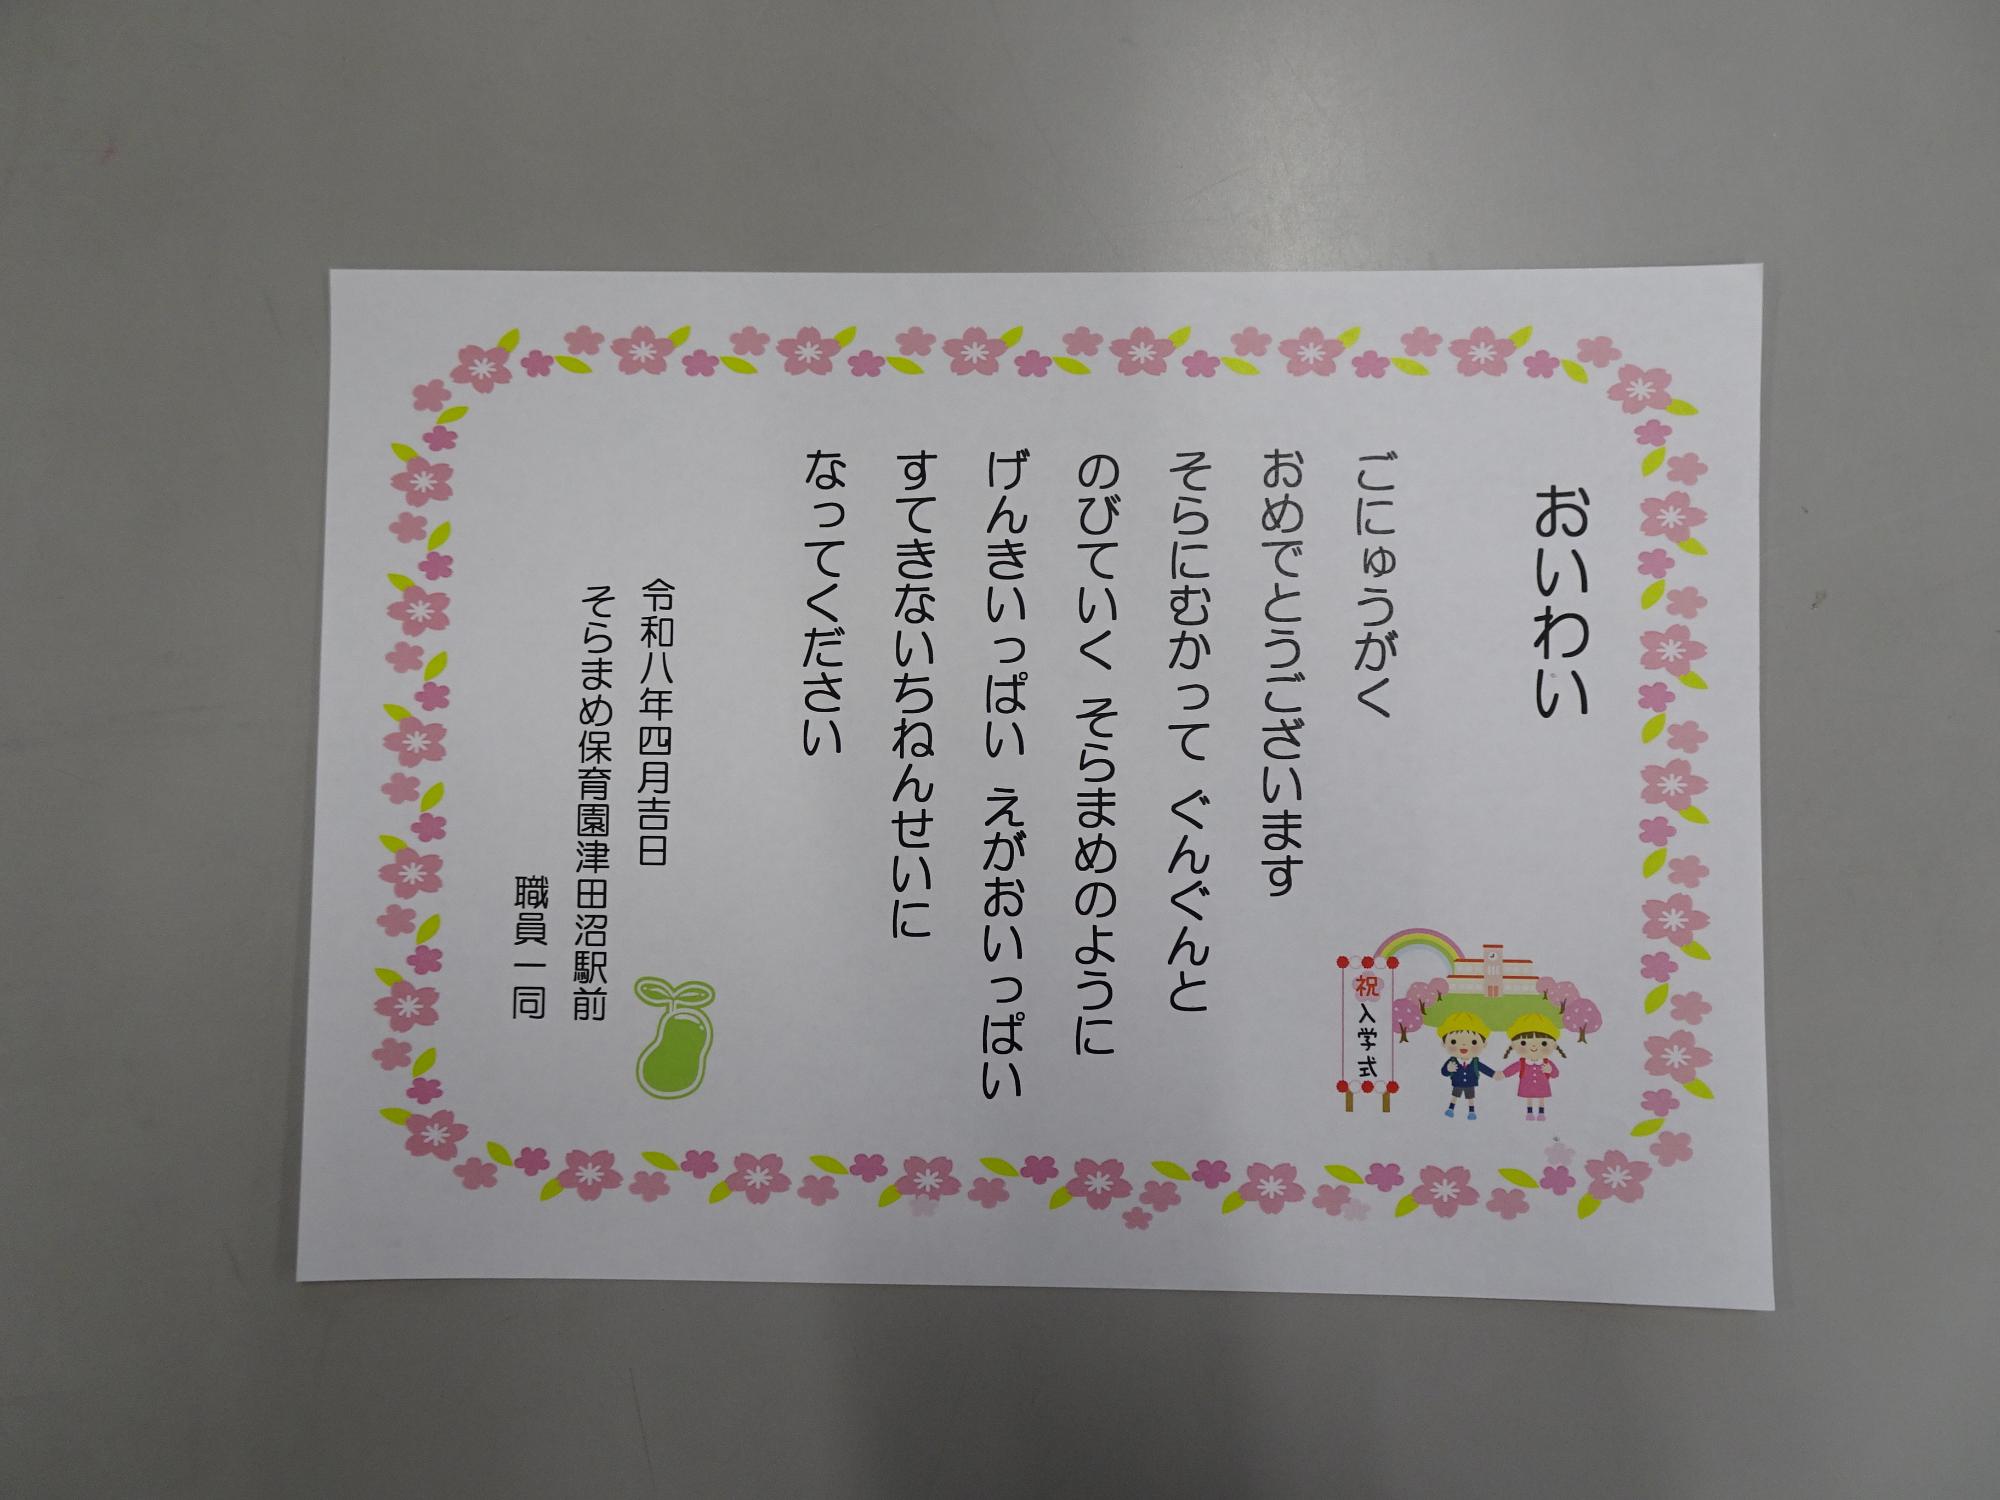 おいわい
ごにゅうがく
おめでとうございます
そらにむかって ぐんぐんと
のびていく そらまめのように
げんきいっぱい えがおいっぱい
すてきないちねんせいに
なってください
令和八年四月吉日
そらまめ保育園津田沼駅前
職員一同
祝入学式